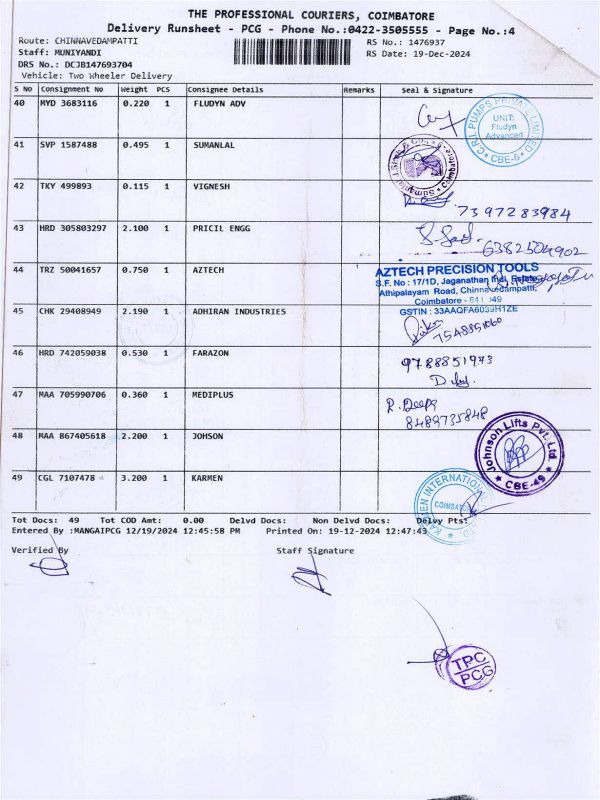 THE PROFESSIONAL COURIERS, COIMBATORE
Delivery Runsheet - PCG - Phone No.:0422-3505555 - Page No.:4
Route: CHINNAVEDAMPATTI
RS No.: 1476937
Staff: MUNIYANDI
RS Date: 19-Dec-2024
DRS No.: DCJB147693704
Vehicle: Two Wheeler Delivery
S No Consignment No Weight PCS Consignee Details Remarks Seal & Signature
40 MYD 3683116 0.220 1 FLUDYN ADV
C.R.I. PUMPS PRIVATE LIMITED
UNIT:
Fludyn
Advanced
CBE-6
41 SVP 1587488 0.495 1 SUMANLAL
Coimbatore
42 TKY 499893 0.115 1 VIGNESH
7397283984
43 HRD 305803297 2.100 1 PRICIL ENGG
6382504902
44 TRZ 50041657 0.750 1 AZTECH
AZTECH PRECISION TOOLS
S.F. No : 17/1D, Jaganathan Indl. Estate,
Athipalayam Road, Chinnavedampatti,
Coimbatore - 641 049
GSTIN : 33AAQFA6039H1ZE
45 CHK 29408949 2.190 1 ADHIRAN INDUSTRIES
7548851060
46 HRD 742059038 0.530 1 FARAZON
9788851973
47 MAA 705990706 0.360 1 MEDIPLUS
R. Deepa
8489735848
48 MAA 867405618 2.200 1 JOHSON
Johnson Lifts Pvt. Ltd.
CBE-49
49 CGL 7107478 3.200 1 KARMEN
KARMEN INTERNATIONAL
COIMBATORE
Tot Docs: 49 Tot COD Amt: 0.00 Delvd Docs: Non Delvd Docs: Delvy Pts:
Entered By :MANGAIPCG 12/19/2024 12:45:58 PM Printed On: 19-12-2024 12:47:43
Verified By Staff Signature
TPC
PCG